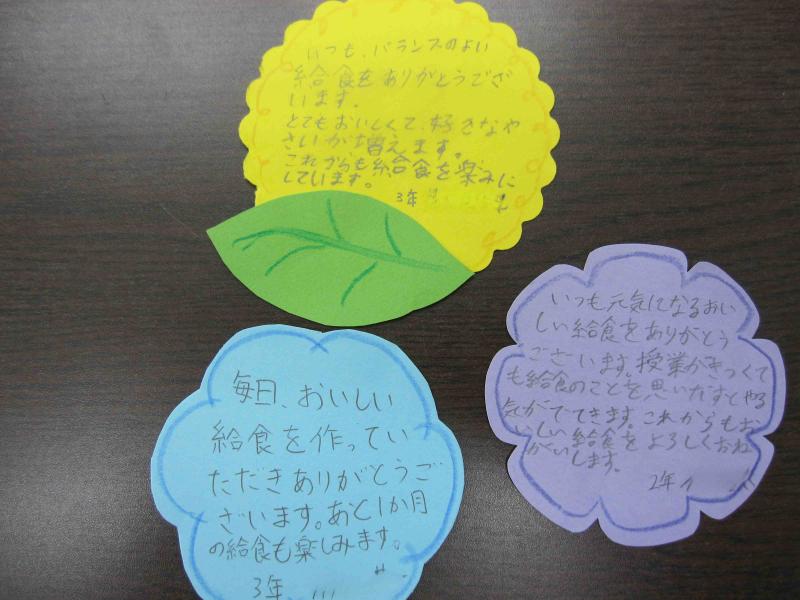 いつも、バランスのよい
給食をありがとうござ
います。
とてもおいしくて、好きなや
さいが増えます。
これからも給食を楽みに
しています。
3年
いつも元気になるおい
しい給食をありがとう
ございます。授業がきつくて
も給食のことを思いだすとやる
気がでてきます。これからもお
いしい給食をよろしくおね
がいします。
2年
毎日、おいしい
給食を作ってい
ただきありがとうご
ざいます。あと1か月
の給食も楽しみます。
3年